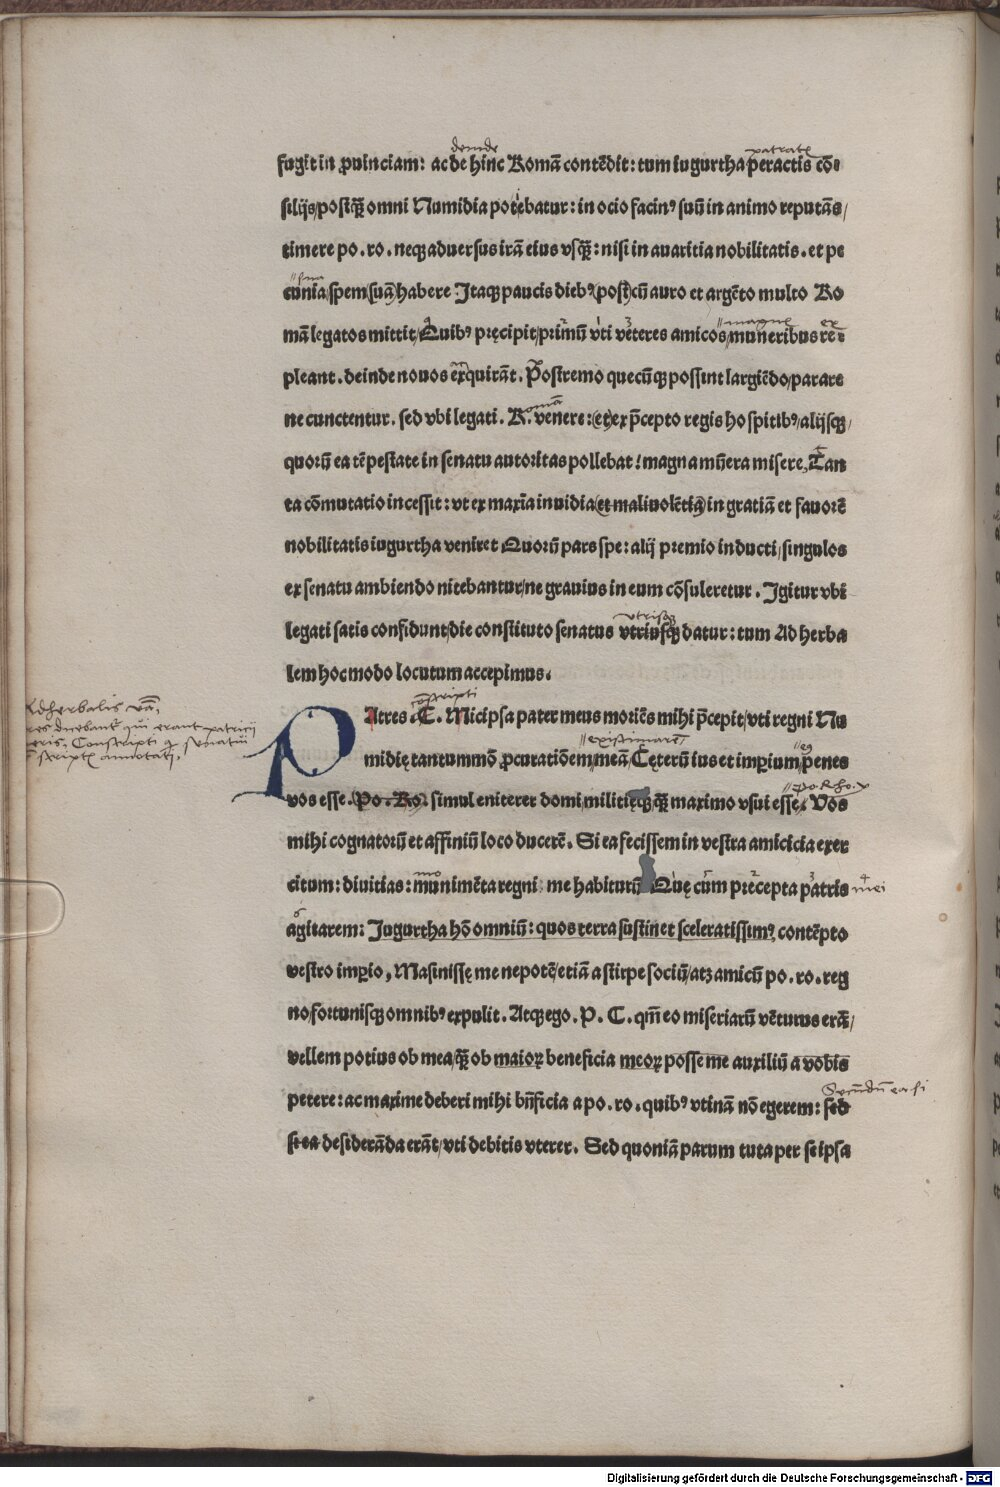 deinde patratꝭ
fugit in ꝓuinciam: ac de hinc Romā contēdit: tum iugurtha peractis cō⸗
silijs/postq̄ȝ omni Numidia potebatur: in ocio facinꝰ suū in animo reputās/
timere po. ro. neqȝ aduersus irā eius vsq̄ȝ: nisi in auaritia nobilitatis. et pe
sua
cunia/spem (suā) habere Itaqȝ paucis diebꝰ (post) cū auro et argēto multo Ro
magnꝭ ex
mā legatos mittit/ Quibꝰ pręcipit/primū vti veteres amicos/muneribus re⸗
pleant. deinde nouos exquirāt. Postremo quecūqȝ possint largiēdo/parare
omā
ne cunctentur. sed vbi legati. R. venere: (et) ex p̄cepto regis hospitibꝰ/alijsqȝ/
quorū ea tēpestate in senatu autoritas pollebat! magna mūera misere, Tan
ta cōmutatio incessit: vt ex maxīa inuidia (et maliuolētia) in gratiā et fauorē
nobilitatis iugurtha veniret Quorū pars spe: alij premio inducti/singulos
ex senatu ambiendo nitebantur/ne grauius in eum cōsuleretur. Igitur vbi
vtrisqȝ
legati satis confidunt/die constituto senatus vtriusqȝ datur: tum Adherba
lem hoc modo locutum accepimus.
cōscripti
Adherbalis
PAtres C. Micipsa pater meus moriēs mihi p̄cepit/vti regni Nu
erant patricij
Conscripti
existimarē
midię tantummō ꝓcurationem/meā/ Cęterū ius et imꝑium/penes
po. Rho.
vos esse. (Po. Ro). simul eniterer domi/militięqȝ/q̄ȝ maximo vsui esse. Vos
mihi cognatorū et affiniū loco ducerē. Si ea fecissem in vestra amicicia exer
mo
citum: diuitias: munimēta regni: me habiturū Quę cum precepta patris mei
agitarem: Jugurtha hō omniū: quos terra sustinet sceleratissimꝰ, contēpto
vestro imꝑio, Masinissę me nepotē/etiā a stirpe sociū/atȝ amicū po. ro. reg
no/fortunisqȝ omnibꝰ expulit. Atqȝ ego. P. C. qm̄ eo miseriarū vēturus erā/
vellem potius ob mea/q̄ȝ ob maioꝝ beneficia meoꝝ posse me auxiliū a vobis
Secūdū ea si
petere: ac maxime deberi mihi bn̄ficia a po. ro. quibꝰ vtinā nō egerem: sed
si ea desiderāda erāt/vti debitis vterer. Sed quoniā parum tuta per se ipsa
Digitalisierung gefördert durch die Deutsche Forschungsgemeinschaft - DFG